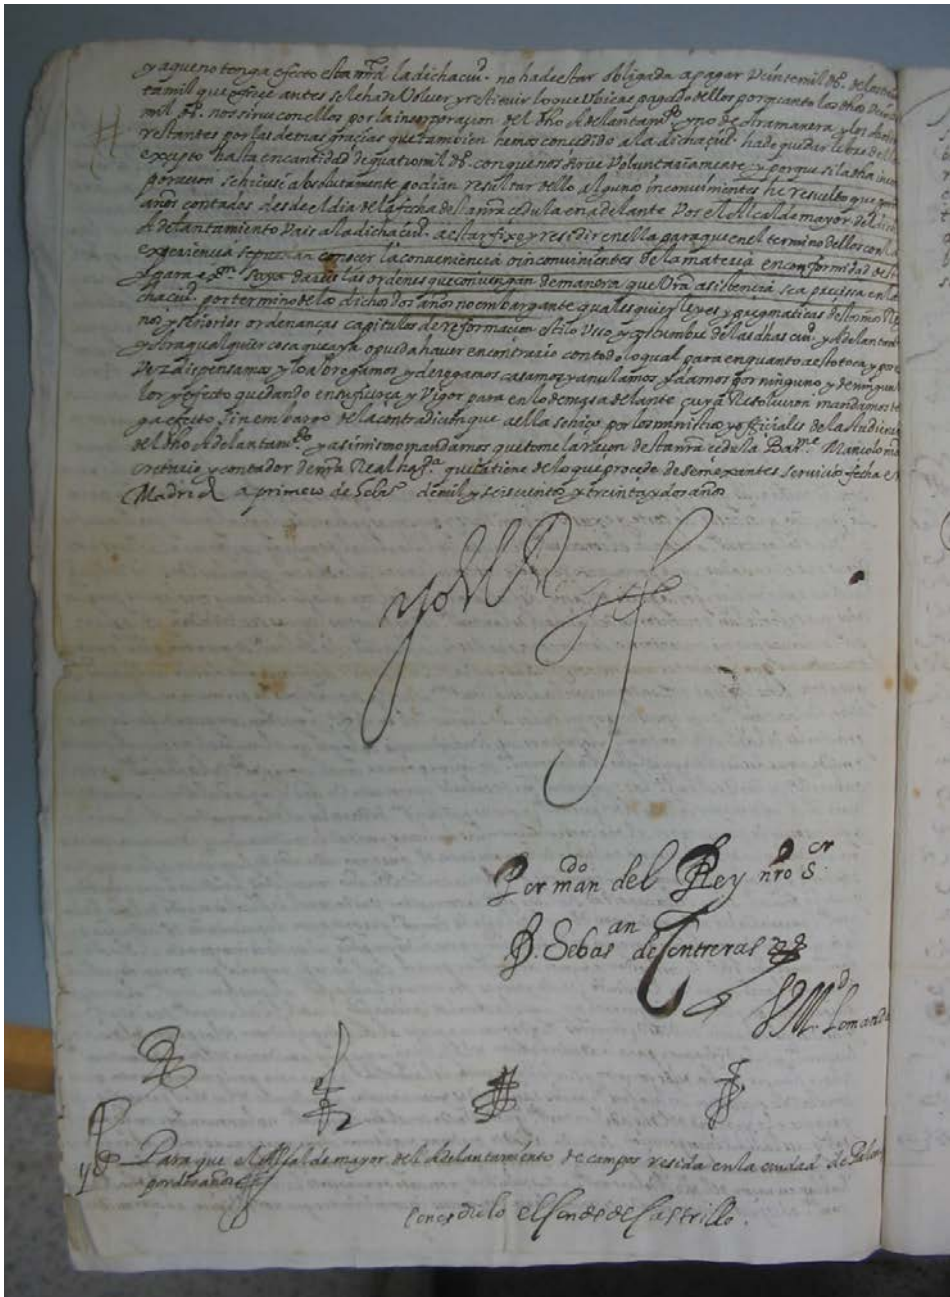 y aque no tenga efecto esta mrd la dicha ciud. no ha de estar obligada a pagar Veinte mil ds. de los
ta mil que ofrece antes se le ha de Volver y restituir lo que Vbiere pagado dellos por quanto los dhos
mil ds. nos sirue con ellos por la incorporaçion del dho Adelantamto y no de otra manera y los
restantes por las demas graçias que tambien hemos conçedido a la dicha çiud. ha de quedar libre
excepto hasta en cantidad de quatro mil ds. con que nos sirue Voluntariamente y porque si la dha
poraçion se hiçiese absolutamente podian resultar dello algunos inconvinientes he resuelto que
años contados desde el dia de la fecha desta nra çedula en adelante Vos el Alcalde mayor del
Adelantamiento Vais a la dicha çiud. a estar fixo y residir en ella para que en el termino dellos con la
experiençia se puedan conocer la conveniençia o inconvinientes de la materia en conformidad
y para exon. suya dareis las ordenes que convengan de manera que Vra asistençia sea precissa en la
cha çiud. por termino de los dichos dos años no embargante quales quier leyes y pregmaticas destos nros
nos y señorios ordenanças capitulos de reformaçion estilo Vsso y costumbre de las dhas ciud. y Adelantamto
y otra qualquier cosa que aya o pueda haver en contrario con todo lo qual para en quanto a esto toca y por
Vez dispensamos y lo abrogamos y derogamos casamos y anulamos y damos por ninguno y de ningun
lor y efecto quedando en su fuerça y Vigor para en lo demas adelante cuya Resoluçion mandamos
ga efecto sin embargo de la contradiçion que a ella se hiço por los ministros y offiçiales de la Audiençia
del dho Adelantamto y asimismo mandamos que tome la raçon desta nra çedula Barme Manolo
cretario y contador de nra Real hazda que la tiene de lo que proçede de semexantes serviçios fecha en
Madrid a primero de Febro de mil y seisçientos y treinta y dos años
yo el Rey
Por mando del Rey nro Sor
D. Sebasan de Contreras
Para que el Alcalde mayor del Adelantamiento de campos resida en la ciudad de
por dos años
Concediolo el Conde de Castrillo.